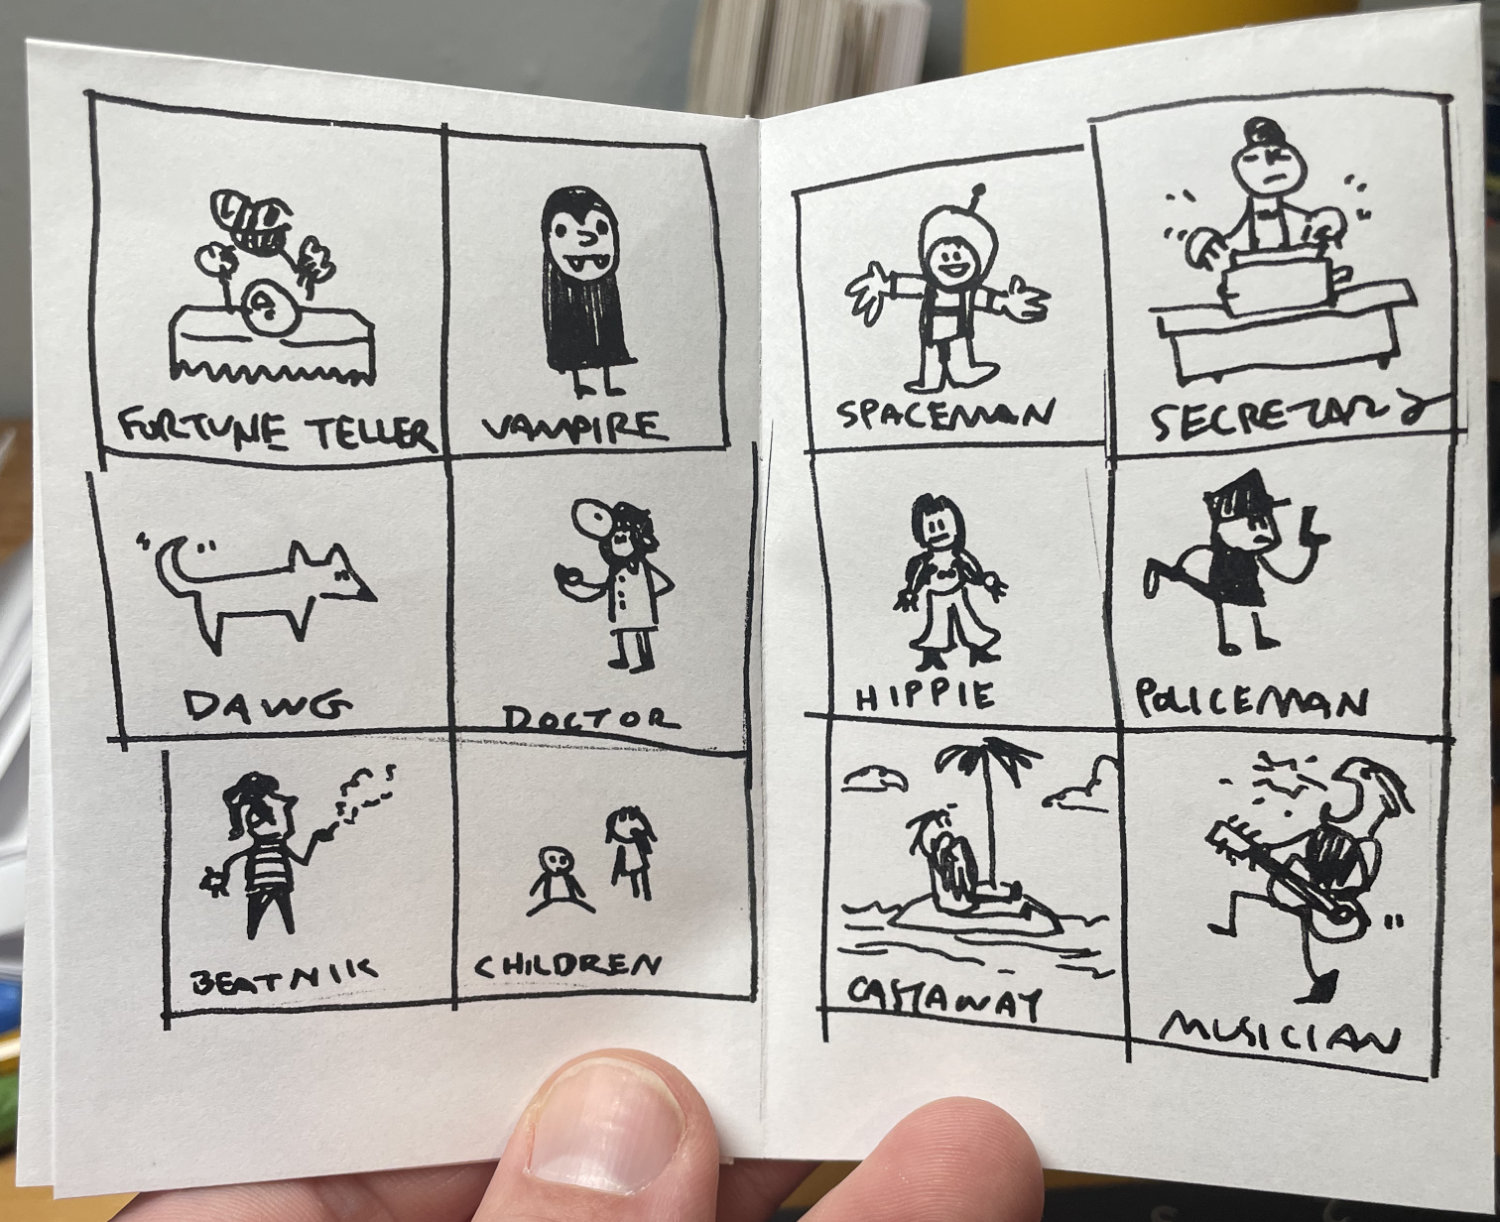 FORTUNE TELLER
VAMPIRE
DAWG
DOCTOR
BEATNIK
CHILDREN
SPACEMAN
SECRETARY
HIPPIE
POLICEMAN
CASTAWAY
MUSICIAN